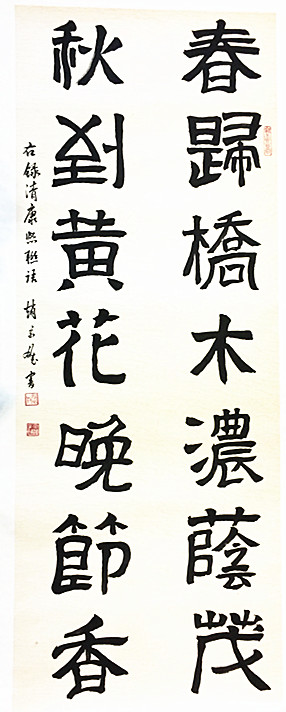 春歸橋木濃蔭茂
秋到黄花晚節香
右錄清康熙聯語 趙 書